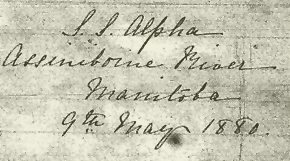 S. S. Alpha
Assiniboine River
Manitoba
9th May 1880.